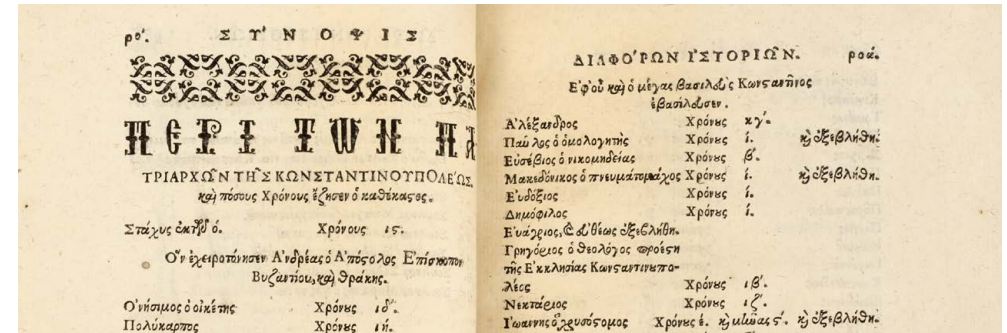 ρο΄. ΣΥ΄ΝΟΨΙΣ
ΠΕΡΙ ΤΩΝ ΠΑ
ΤΡΙΑΡΧΩ͂Ν ΤΗ͂Σ ΚΩΝΣΤΑΝΤΙΝΟΥΠΟΛΕΩΣ,
καὶ πόσους Χρόνους ἔζησεν ὁ καθέκαστος.
Στάχυς ὁ. Χρόνους ιϛ.
Οὗν ἐχειροτόνησεν Α᾿νδρέας ὁ Α᾿πόστολος Ε᾿πίσκοπον
Βυζαντίου, καὶ Θράκης.
Ο᾿νήσιμος ὁ οἰκέτης Χρόνȣς ιδ΄.
Πολύκαρπος Χρόνȣς ιή.
ΔΙΑΦΟ΄ΡΩΝ Ι῾ΣΤΟΡΙΩ͂Ν. ροά.
Ε᾿φ' οὗ καὶ ὁ μέγας βασιλεὺς Κωνσταντῖνος
ἐβασίλευσεν.
Α᾿λέξανδρος Χρόνȣς κγ΄.
Παῦλος ὁ ὁμολογητὴς Χρόνȣς ί. κỳ ἐξεβλήθη.
Εὐσέβιος ὁ νικομηδείας Χρόνȣς β΄.
Μακεδόνικος ὁ πνευμάτομάχος Χρόνȣς ί. κỳ ἐξεβλήθη.
Εὐδόξιος Χρόνȣς ί.
Δημόφιλος Χρόνȣς ί.
Εὐάγριος, εὐθέως ἐξεβλήθη.
Γρηγόριος ὁ θεολόγος προέστη
τῆς Ε᾿κκλησίας Κωνσταντινȣπο-
λέος Χρόνȣς ιβ΄.
Νεκτάριος Χρόνȣς ιζ΄.
Ι᾿ωάννης ὁ χρυσόστομος Χρόνȣς έ. κỳ μῆνας ϛ΄. κỳ ἐξεβλήθη.